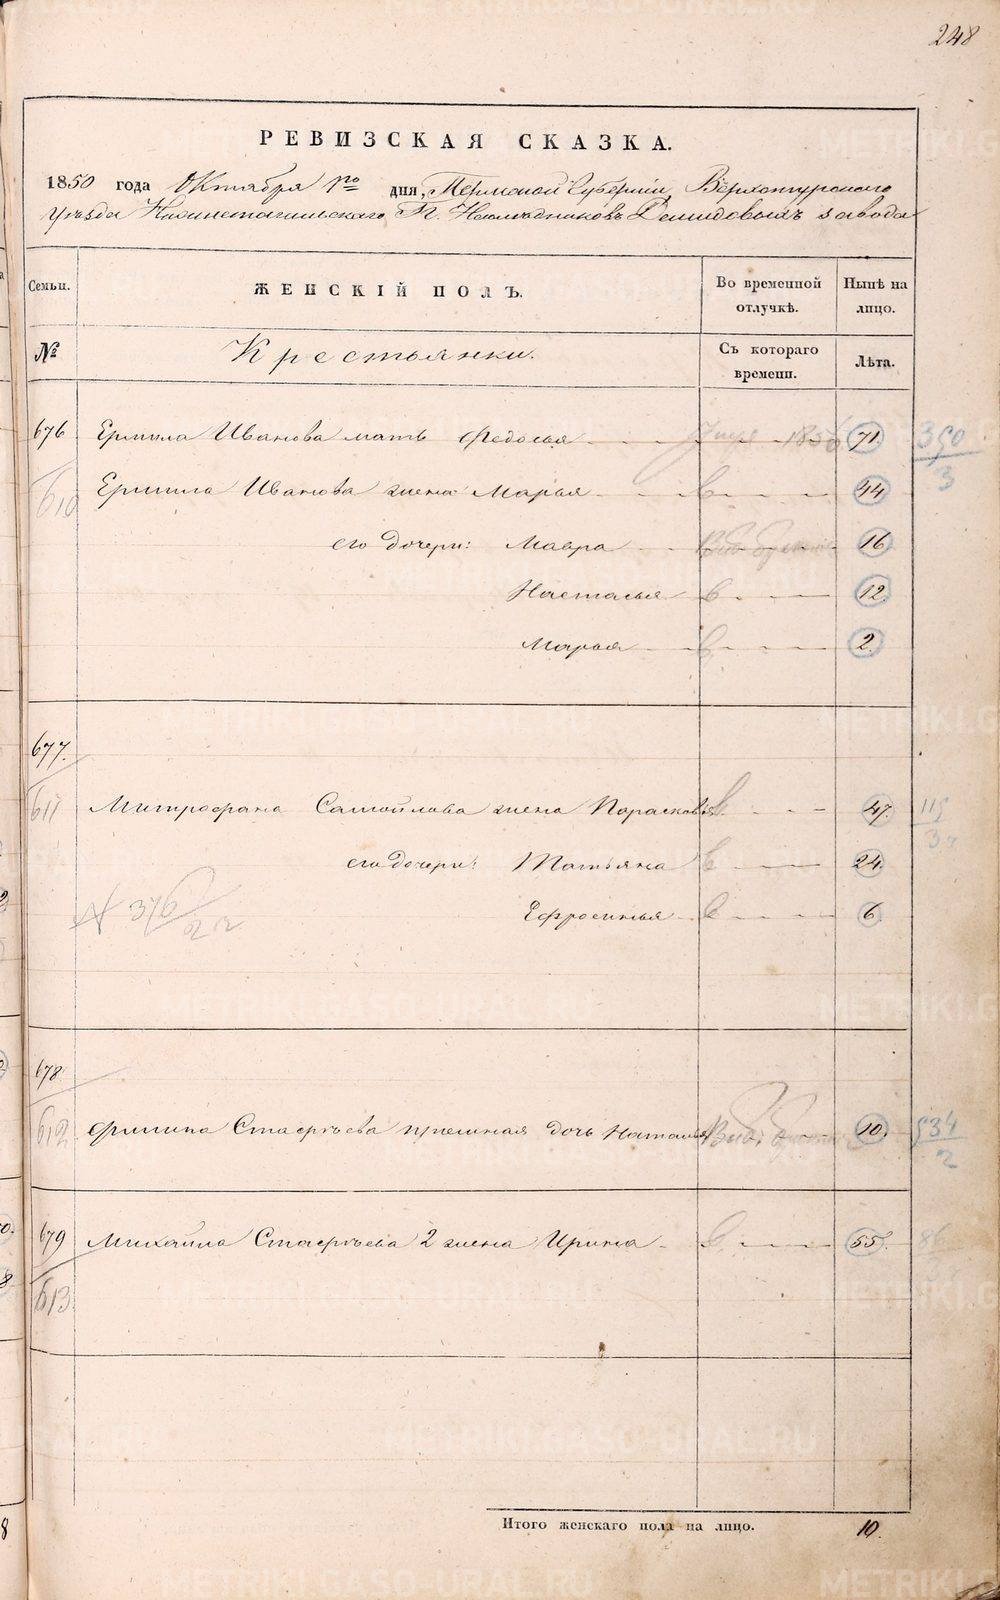 248
РЕВИЗСКАЯ СКАЗКА.
1850 года Октября 1го дня, Пермской Губернiи, Верхотурского
уѣзда Нижнетагильского Г. Наслѣдниковъ Демидовыхъ завода
Семьи. ЖЕНСКIЙ ПОЛЪ. Во временной отлучкѣ. Нынѣ на лицо.
№ Крестьянки. Съ котораго времени. Лѣта.
676 Ермила Иванова мать Федосья 71. 350/3
610 Ермила Иванова жена Марья в 44
его дочери: Мавра 16
Настасья в 12.
Марья в 2.
677.
611 Митрофана Самойлова жена Парасковья в 47. 119/3
его дочери: Татьяна в 24.
Ефросинья в 6.
№ 376/22
678.
612 Филипа Стаергѣева дочь Наталья 10. 534/2
679 Михайла Стаергѣева 2 жена Ирина в 55. 86
613
Итого женскаго пола на лицо. 10.
METRIKI.GASO-URAL.RU